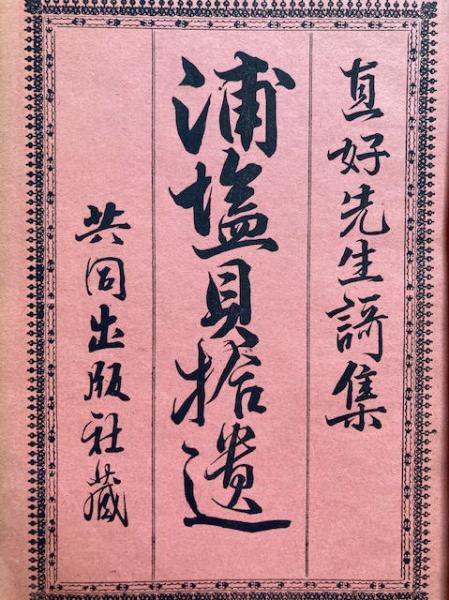 直好先生謌集
浦塩貝拾遺
共同出版社蔵